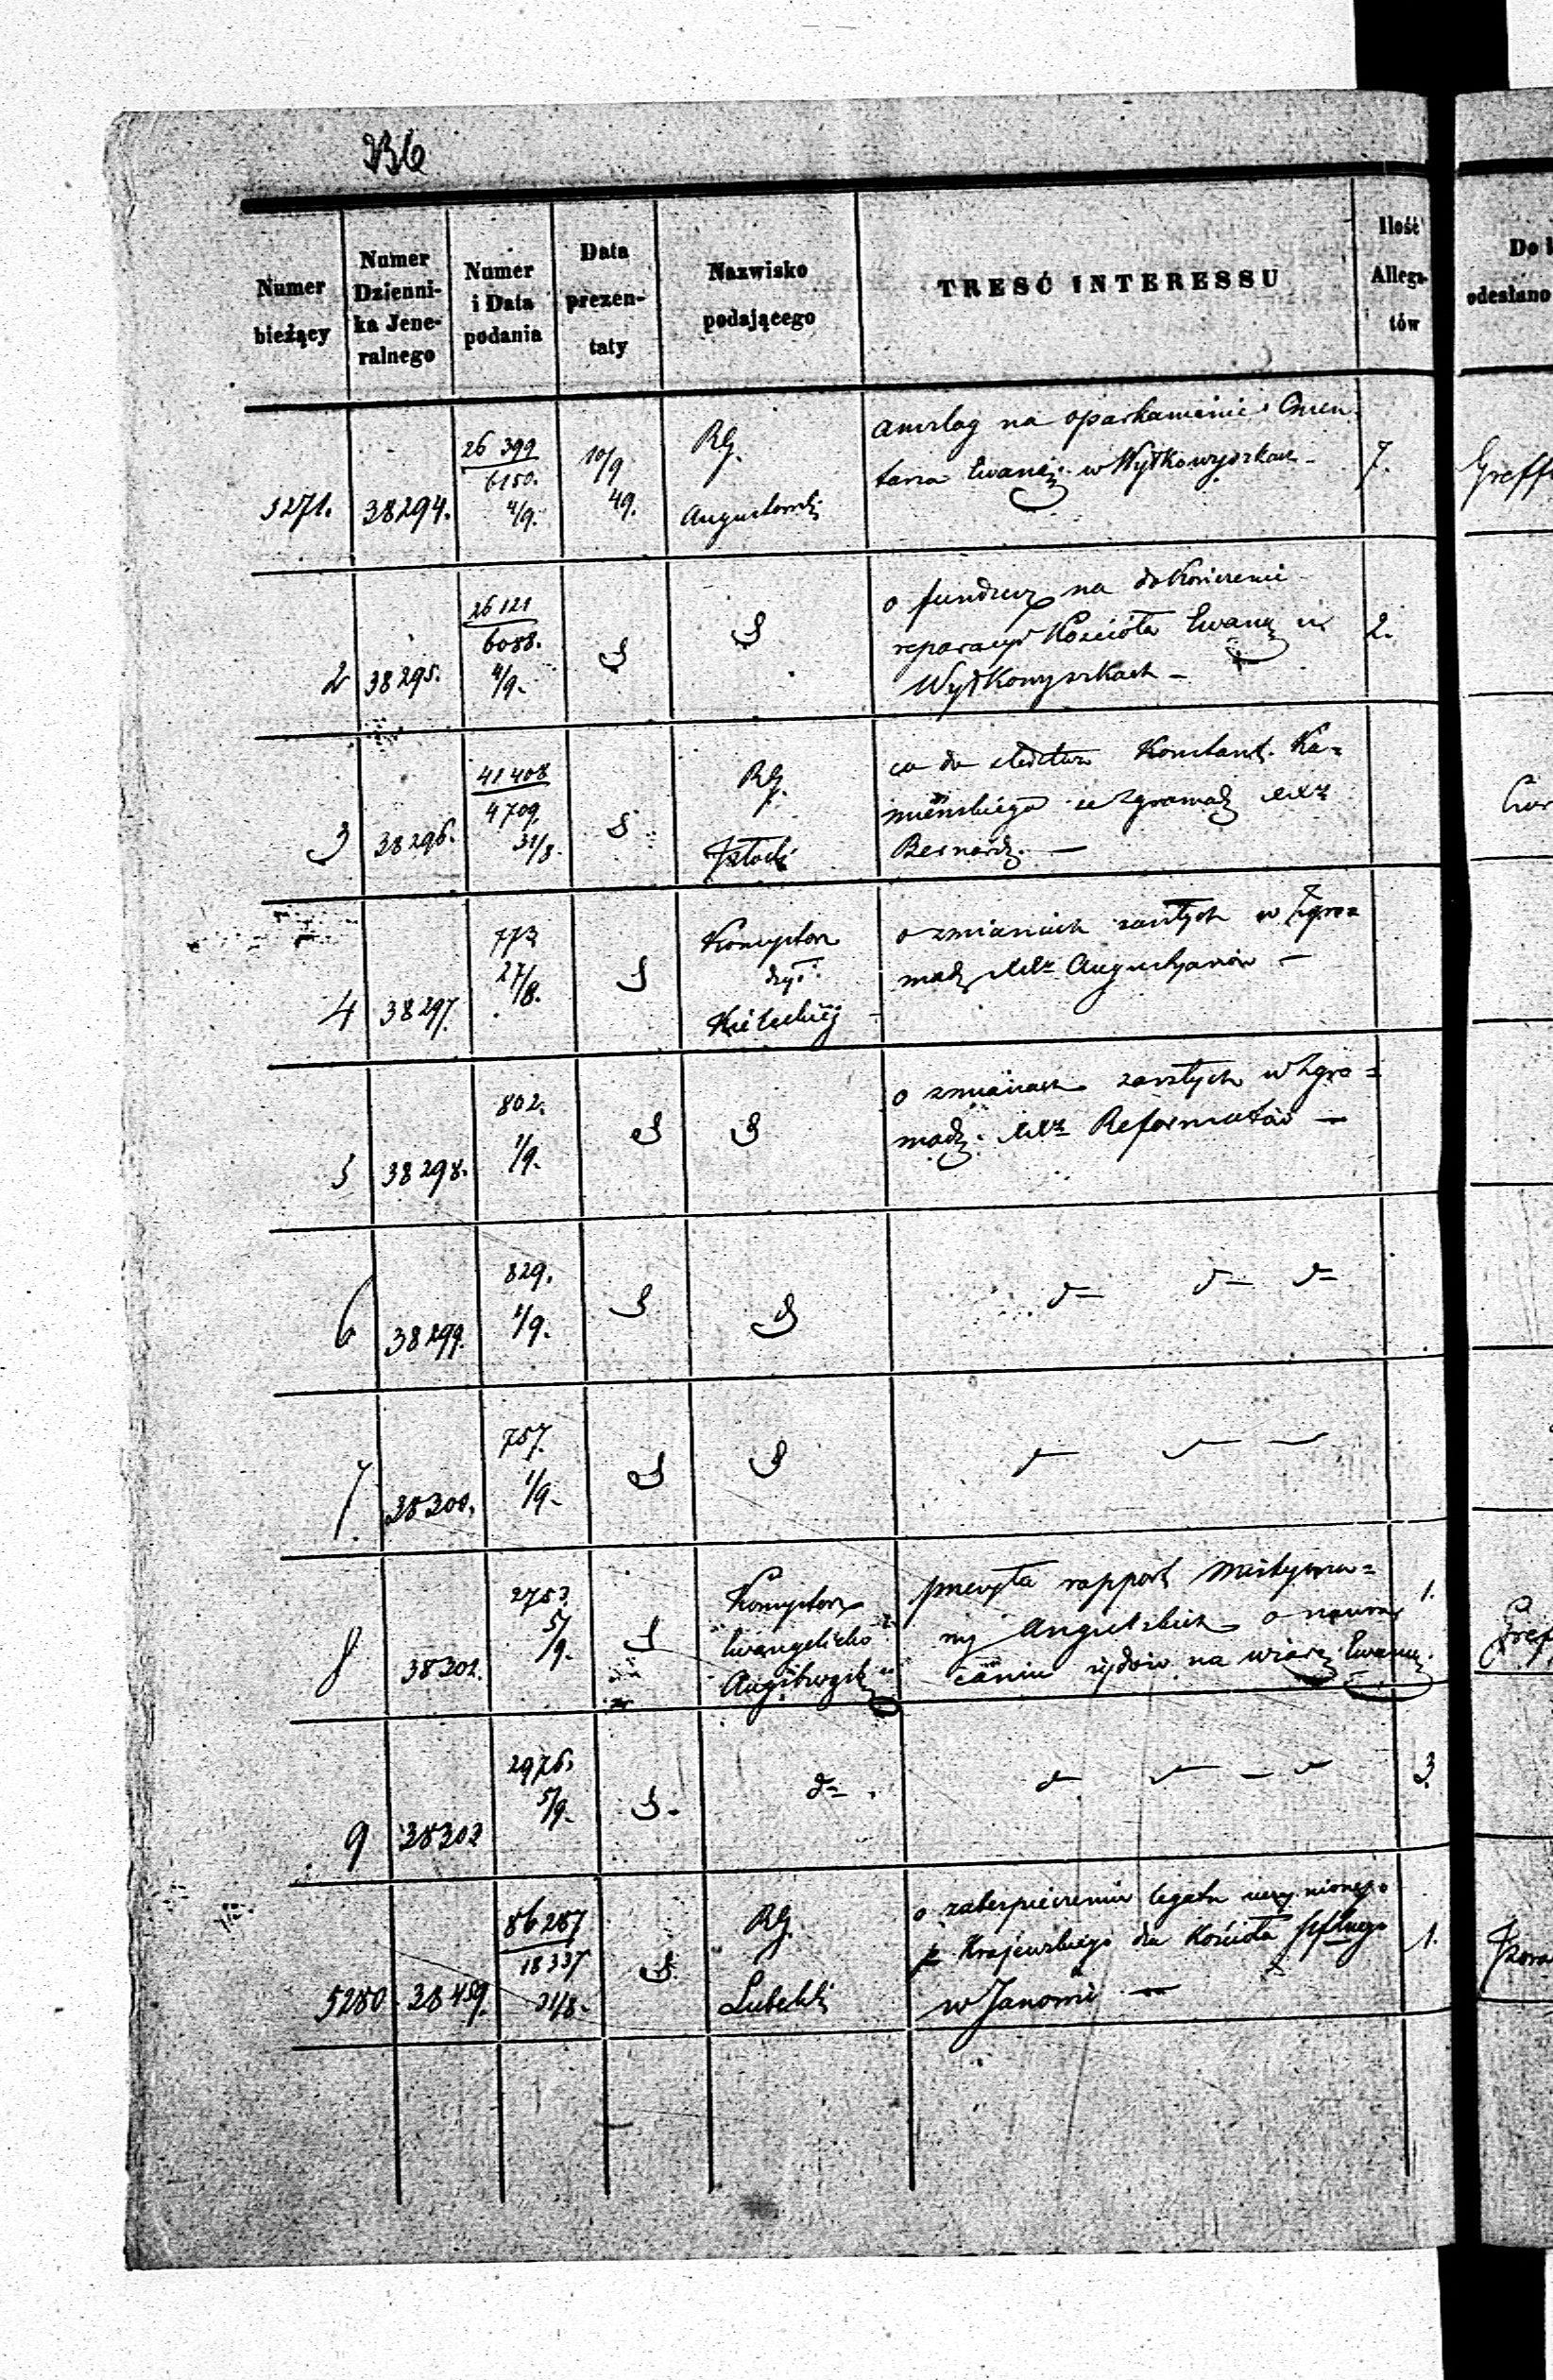 236
Numer bieżący
Numer Dzienni-ka Jene-ralnego
Numer i Data podania
Data prezen-taty
Nazwisko podającego
TREŚĆ INTERESSU
Ilość Allega-tów
5271. 38294. 26 399 / 6150. 4/9. 10/9 49. RG. Augustowski
na oparkanienie Cmen-
tarza Ewang. w Wyłkowyszkach - 7.
2 38295. 26 121 / 6088. 4/9.
o fundusz na dokończenie
reparacyi Kościoła Ewang w 2.
Wyłkowyszkach -
3 38296. 41 408 / 4709. 31/8. RG. Płocki
co do Konstant. Ka=
mieńskiego ze Zgromadz XX
Bernardz. -
4 38297. 773 27/8. Konsystorz dyec. Kieleckiej
o zmianach zaszłych w Zgro=
madz XX Augustyanów -
5 38298. 802. 1/9.
o zmianach zaszłych w Zgro=
madz. XX Reformatów -
6 38299. 829. 1/9. d= d= d=
7. 38300. 757. 1/9.
8 38301. 2753. 5/9. Konsystorz Ewangelicko Augsburgski
przesyła rapport Missyona= 1.
rzy Angielskich o nawra=
caniu żydów na wiarę Ewang.
9 38302 2976. 5/9. d= 3.
5280 38459. 86287 / 18337 21/8. RG. Lubelski
o zabezpieczeniu legatu uczynionego
p Krajewskiego dla Kościoła 1.
w Janowie -
Do
odesłano